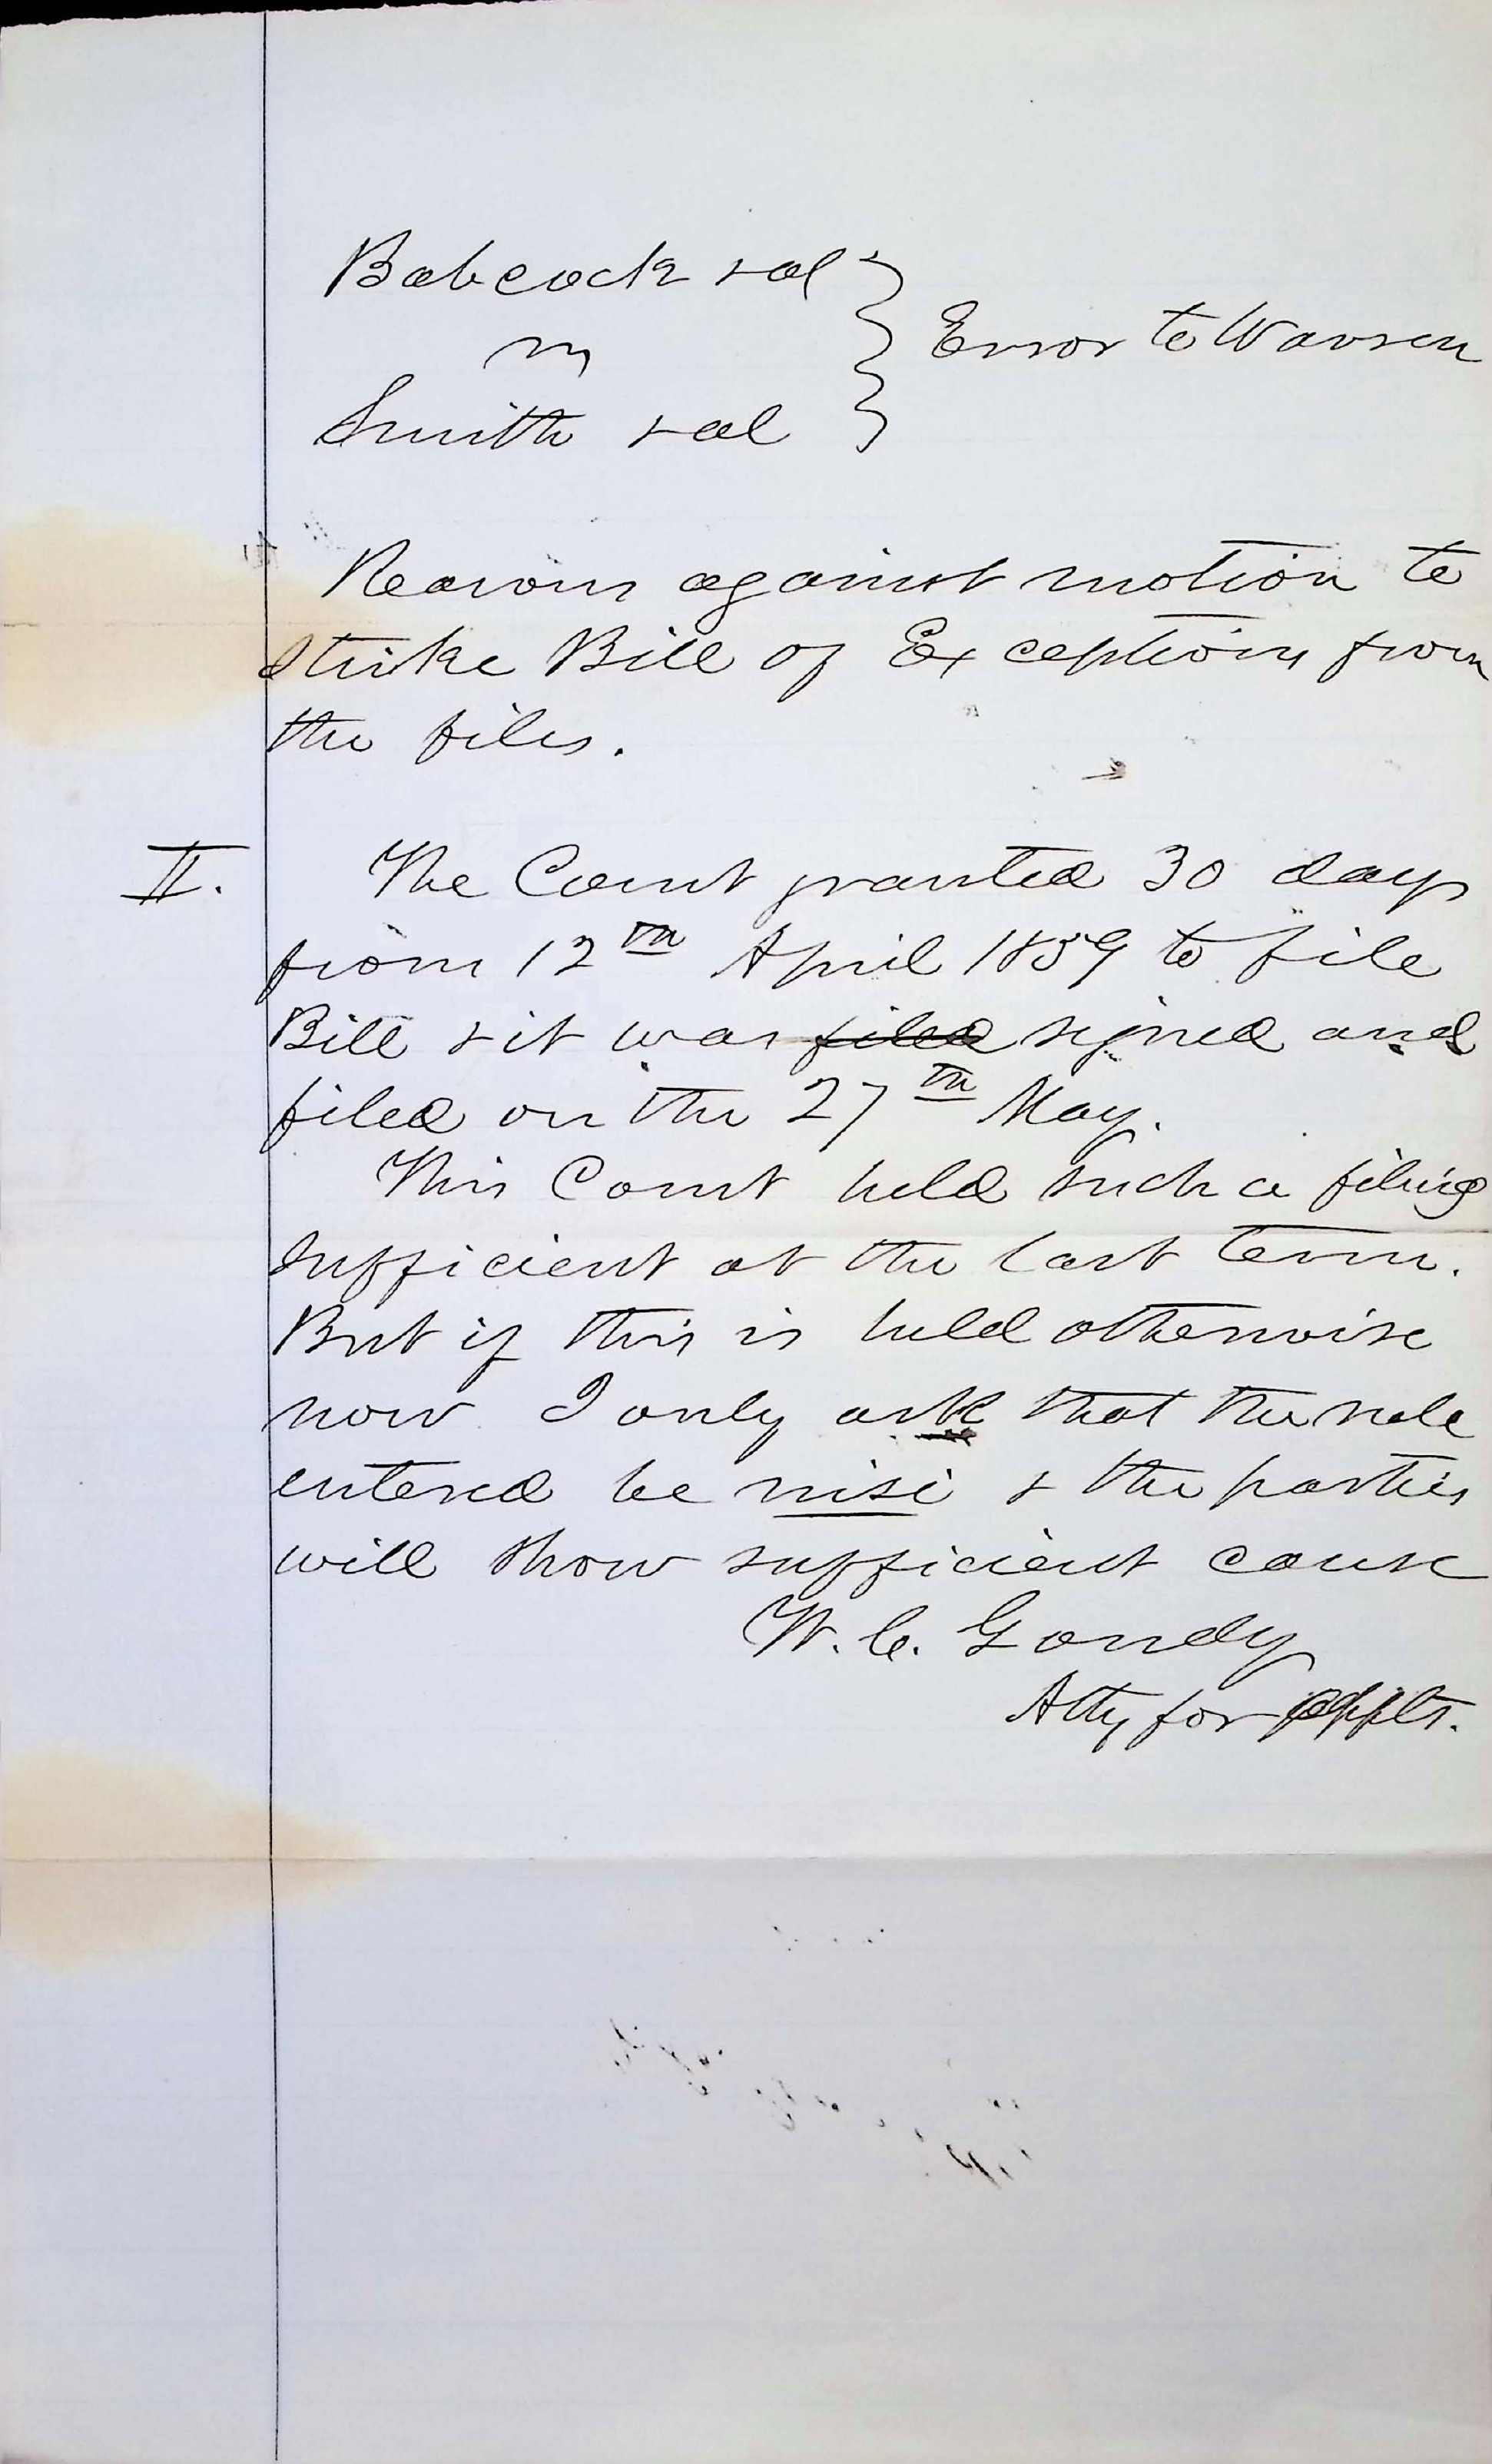 Babcock & al
vs
Smith & al
Error to Warren
Reasons against motion to
strike Bill of Exceptions from
the files.
II. The Court granted 30 days
from 12th April 1859 to file
Bill & it was filed signed and
filed on the 27th May.
This Court held such a filing
sufficient at the last term.
But if this is held otherwise
now I only ask that the rule
entered be nisi & the parties
will show sufficient cause
W. C. Goudy
Atty for